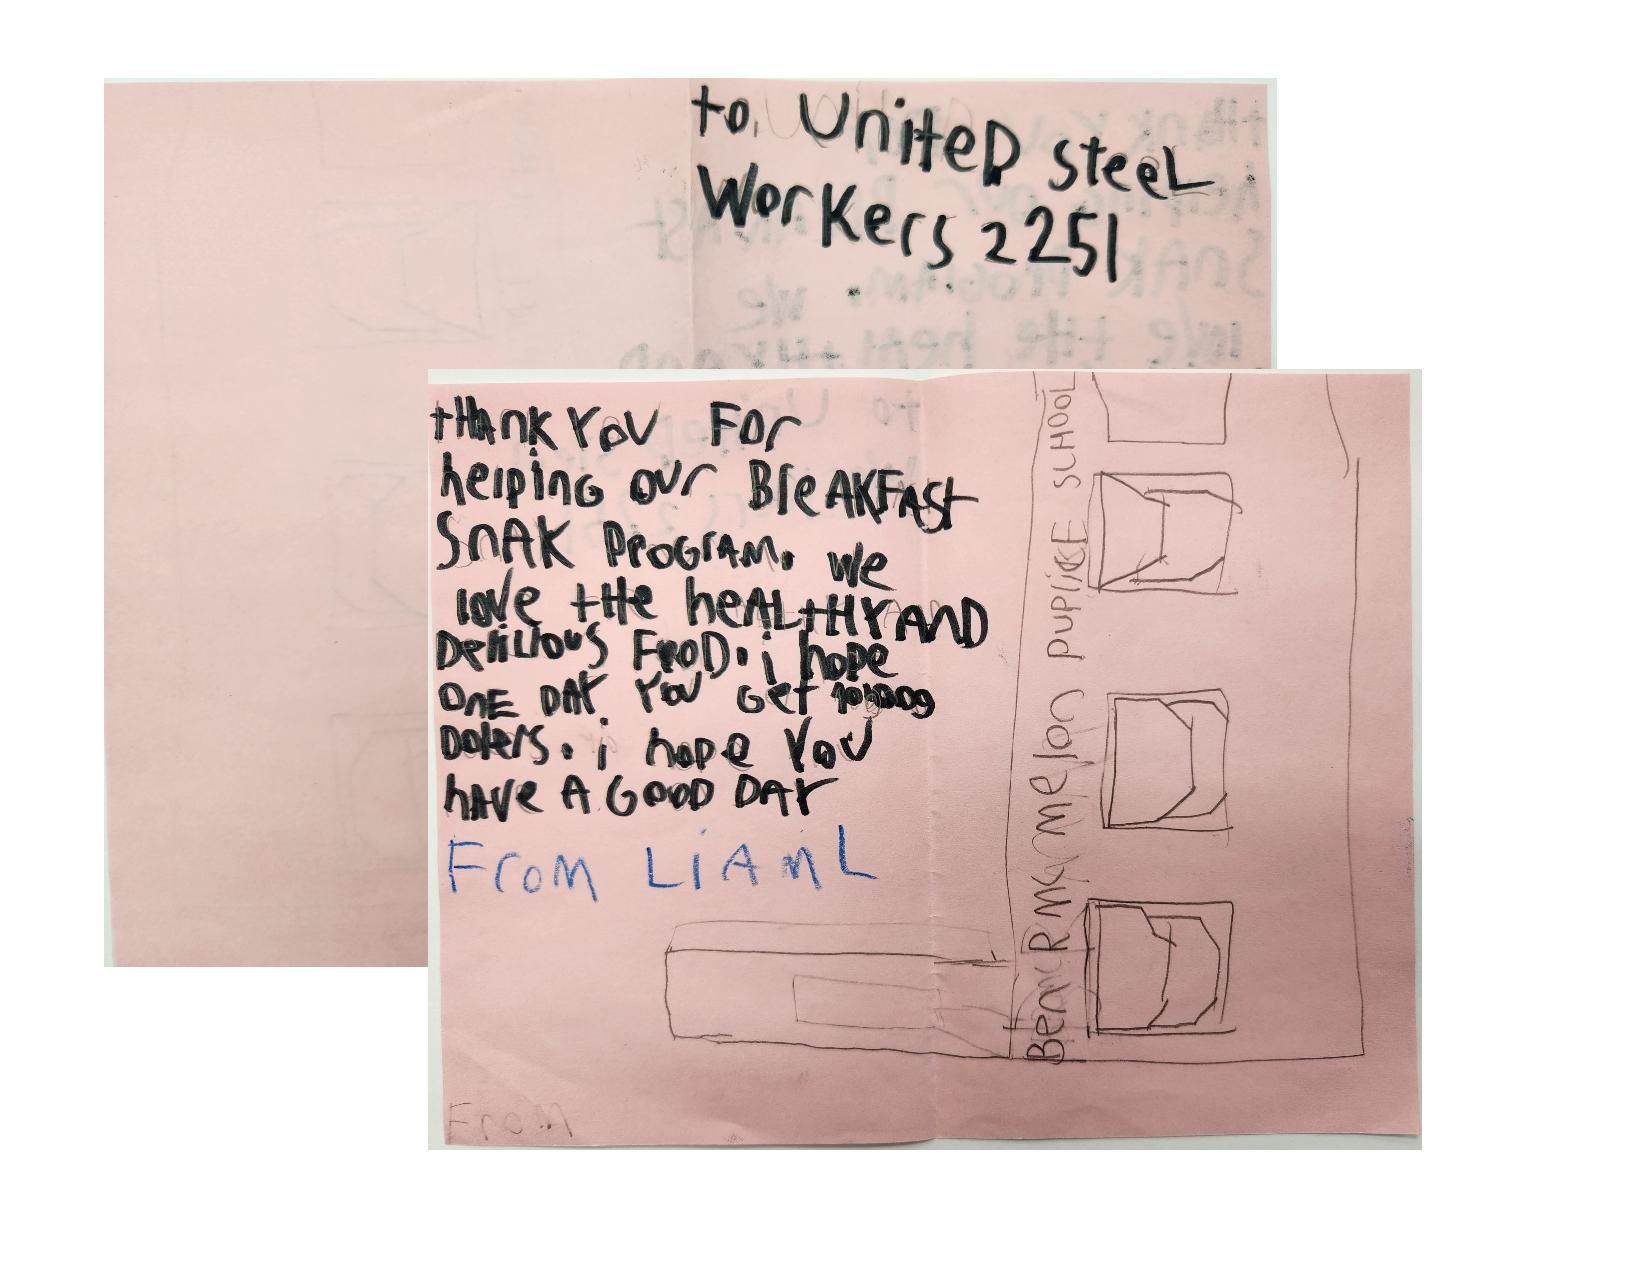 to United Steel
Workers 2251
tHAnk YoU For
helping our BreAKFAst
SnAK ProGrAm. we
love tHe heALtHY AnD
DeliLious FooD. i hope
OnE DAY You Get
Dolers. i hope YoU
hAve A GooD DAY
From LiAm L
From
SCHOOL